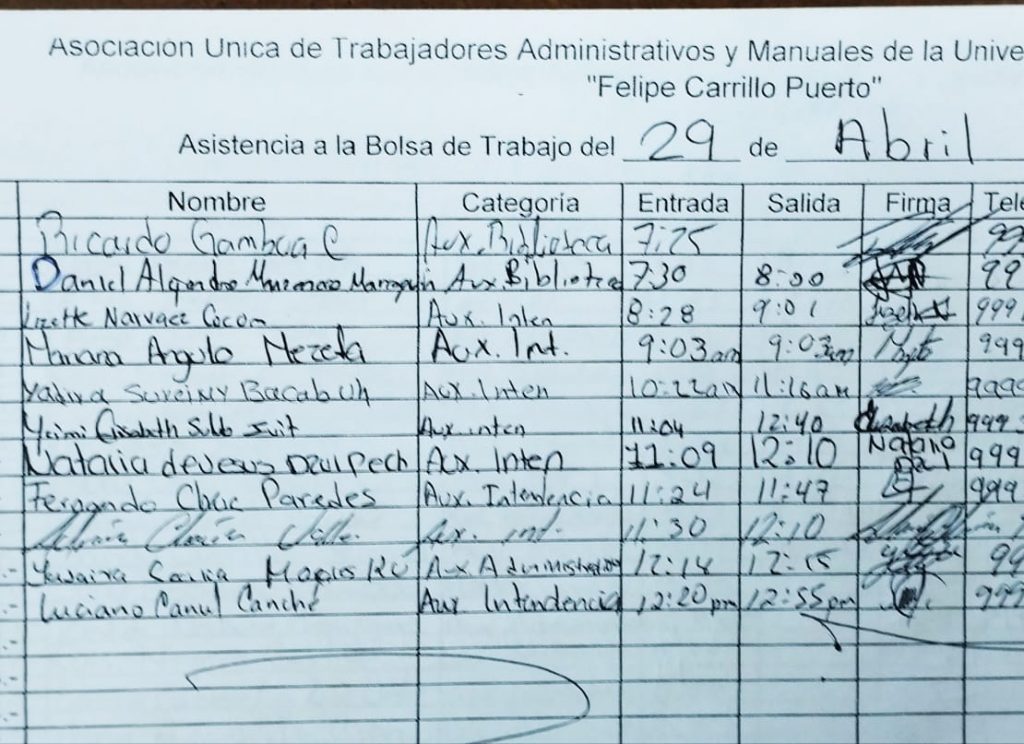 Asociación Única de Trabajadores Administrativos y Manuales de la Unive
"Felipe Carrillo Puerto"
Asistencia a la Bolsa de Trabajo del 29 de Abril
Nombre Categoría Entrada Salida Firma Tele
Ricardo Gamboa C Aux. Biblioteca 7:25 99
Daniel Aux. Biblioteca 7:30 8:00 99
Lizette Narvaez Cocom Aux. Inten 8:28 9:01 999
Mariana Angulo Mezeta Aux. Int. 9:03am 9:03am 999
Yadira Sureiny Bacab Uh Aux. Inten 10:22am 11:16am 999
Yeimi Elisabeth Aux inten 11:04 12:40 Elizabeth 999
Natalia de Jesus Dzul Pech Aux. Inten 11:09 12:10 Natalia Dzul 999
Fernando Chuc Paredes Aux. Intendencia 11:24 11:47 999
Aux. int. 11:30 12:10
Aux Administrativo 12:14 12:15 99
Luciano Canul Canché Aux. Intendencia 12:20pm 12:55pm 999